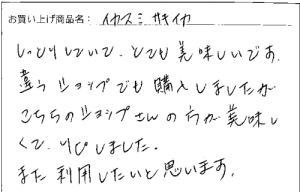 お買い上げ商品名: イカスミサキイカ
しっとりしていて、とても美味しいです.
違うショップでも購入しましたが
こちらのショップさんの方が美味し
くて、リピしました.
また利用したいと思います.